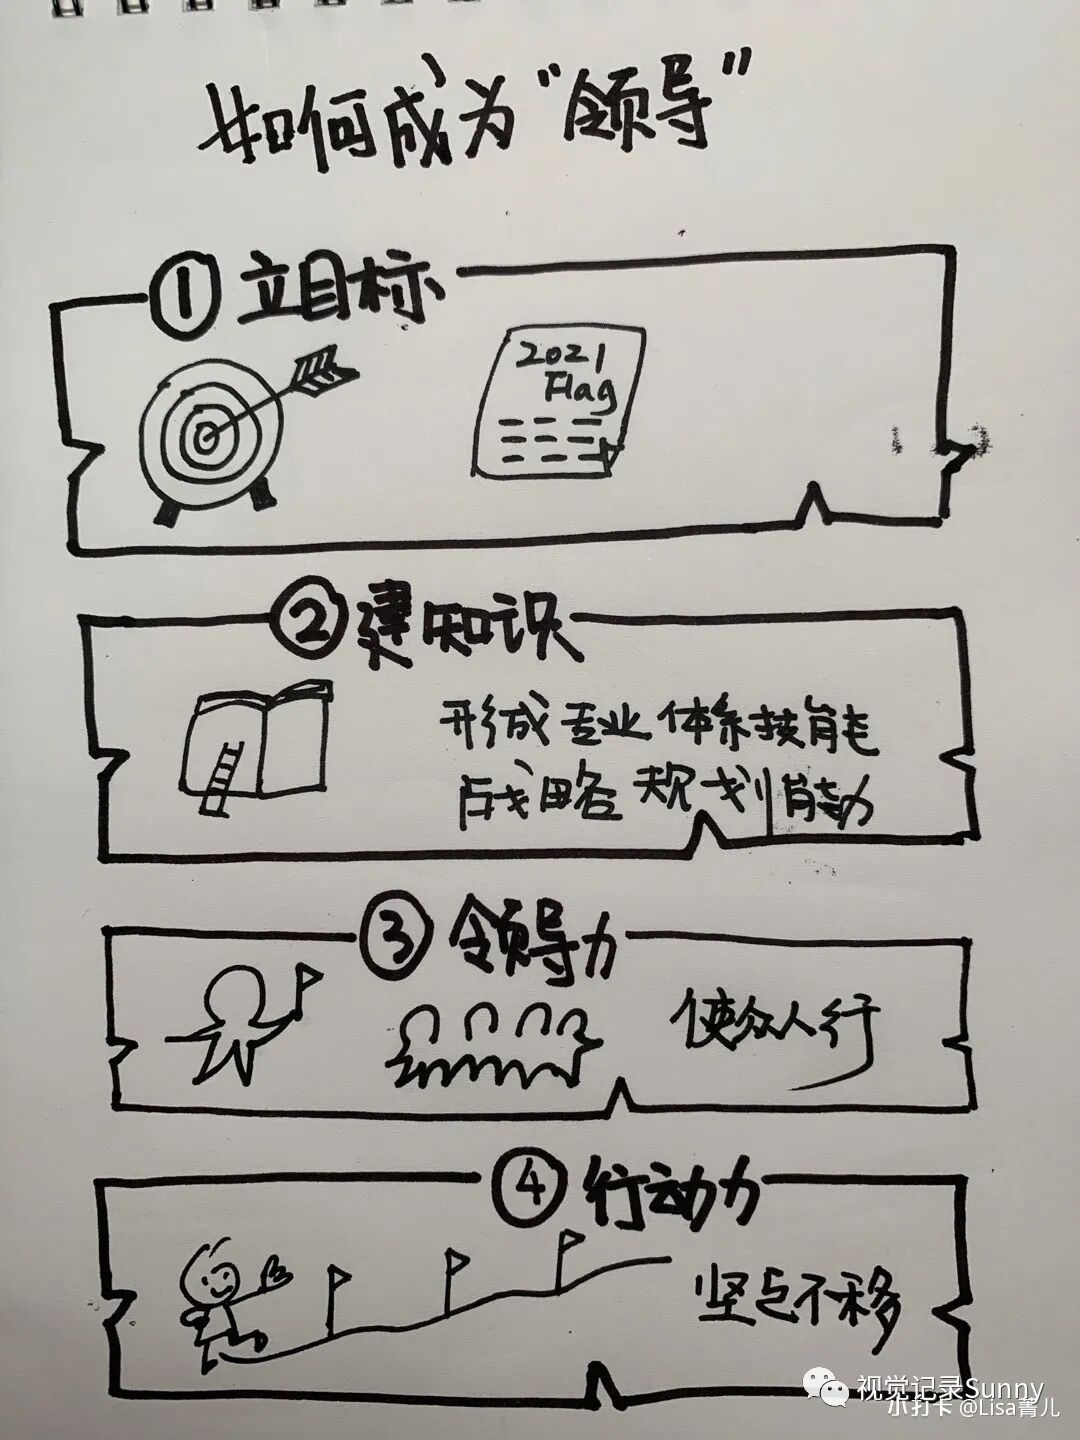 如何成为“领导”
① 立目标
2021
Flag
② 建知识
形成专业体系技能
战略规划能力
③ 领导力
使众人行
④ 行动力
坚定不移
视觉记录Sunny
小打卡 @Lisa菁儿